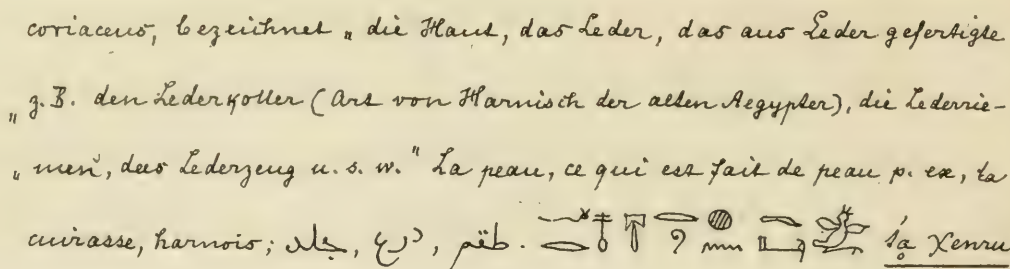 coriaceus, bezeichnet „die Haut, das Leder, das aus Leder gefertigte
„z. B. den Lederkoller (Art von Harnisch der alten Aegypter), die Lederrie-
„men, das Lederzeug u. s. w." La peau, ce qui est fait de peau p. ex, la
cuirasse, harnois; جلد, درع, طقم.